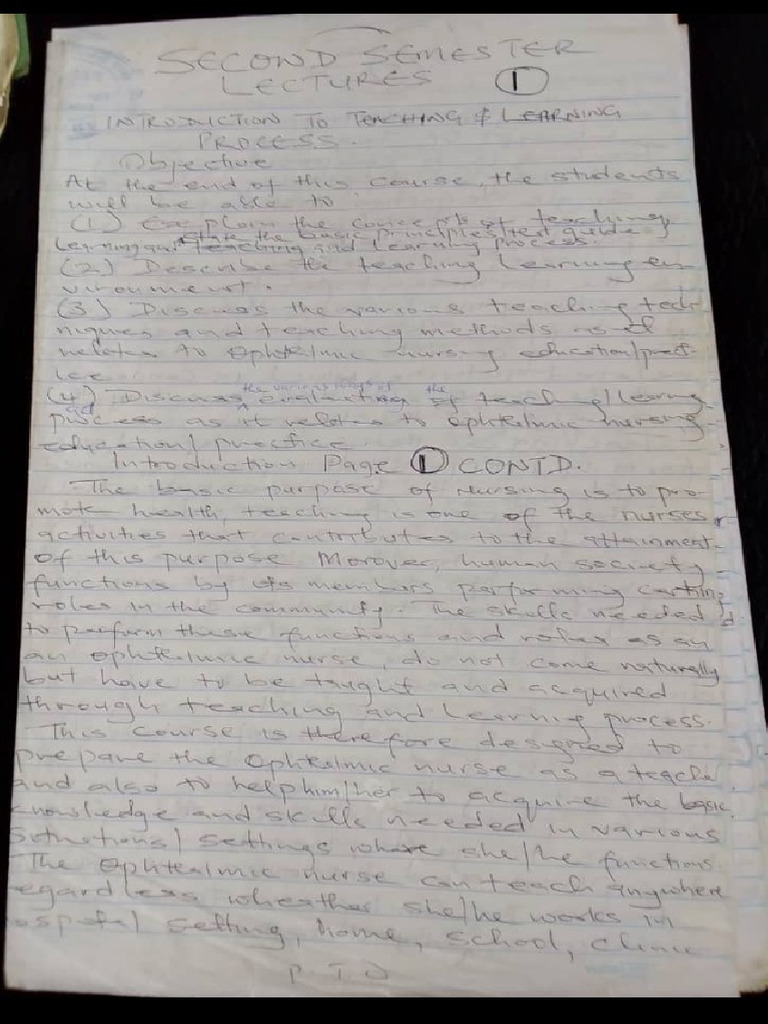 SECOND SEMESTER
LECTURES 1
INTRODUCTION TO TEACHING & LEARNING
PROCESS.
Objective
At the end of this course, the students
will be able to
(1) Explain the concepts of teaching,
state the basic principles that guide
Learning teaching and Learning process.
(2) Describe the teaching Learning en
vironment.
(3) Discuss the various teaching tech
niques and teaching methods as it
relates to Ophtelmic nursing education/pract-
ice.
the various ways of the
(4) Discuss evaluating of teaching/learning
process as it relates to ophtelmic nursing
education/practice.
Introduction Page 1 CONTD.
The basic purpose of Nursing is to pro-
mote health, teaching is one of the nurses
activities that contributes to the attainment
of this purpose Morover, human society
functions by its members performing certain
roles in the community. The skills needed
to perform these functions and roles as an
an Ophtelmic nurse, do not come naturally
but have to be taught and acquired
through teaching and Learning process.
This course is therefore designed to
prepare the Ophtelmic nurse as a teache
and also to help him/her to acquire the basic
knowledge and skills needed in various
situations/settings where she/he functions
The Ophtelmic nurse can teach anywhere
egardless wheather she/he works in
ospital setting, home, school, clinic
P T O